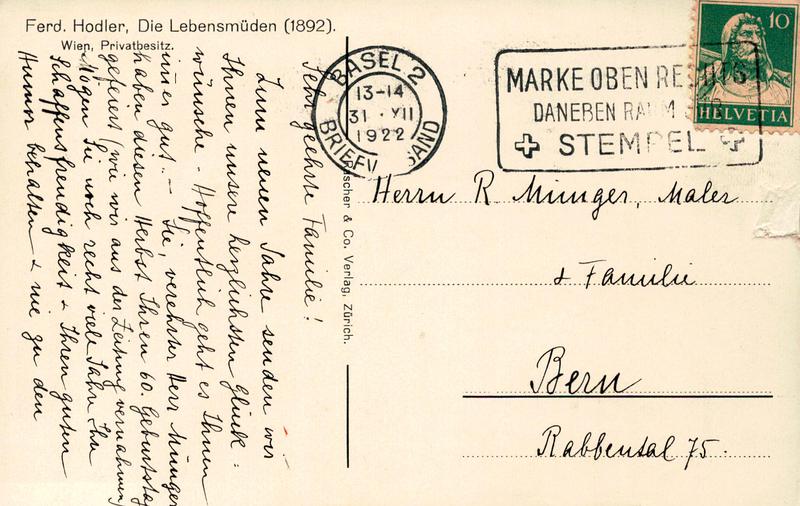 Ferd. Hodler, Die Lebensmüden (1892).
Wien, Privatbesitz.
Sehr geehrte Familie!
Zum neuen Jahre senden wir
Ihnen unsere herzlichsten Glück-
wünsche. Hoffentlich geht es Ihnen
immer gut. – Sie, verehrter Herr Münger
haben diesen Herbst Ihren 60. Geburtstag
gefeiert (wie wir aus der Zeitung vernahmen)
Mögen Sie noch recht viele Jahre Ihre
Schaffensfreudigkeit & Ihren guten
Humor behalten & nie zu den
Rascher & Co. Verlag, Zürich.
BASEL 2
13-14
31. XII
1922
BRIEFVERSAND
MARKE OBEN RECHTS
DANEBEN RAUM FÜR
STEMPEL
10
HELVETIA
Herrn R. Münger, Maler
& Familie
Bern
Rabbental 75.